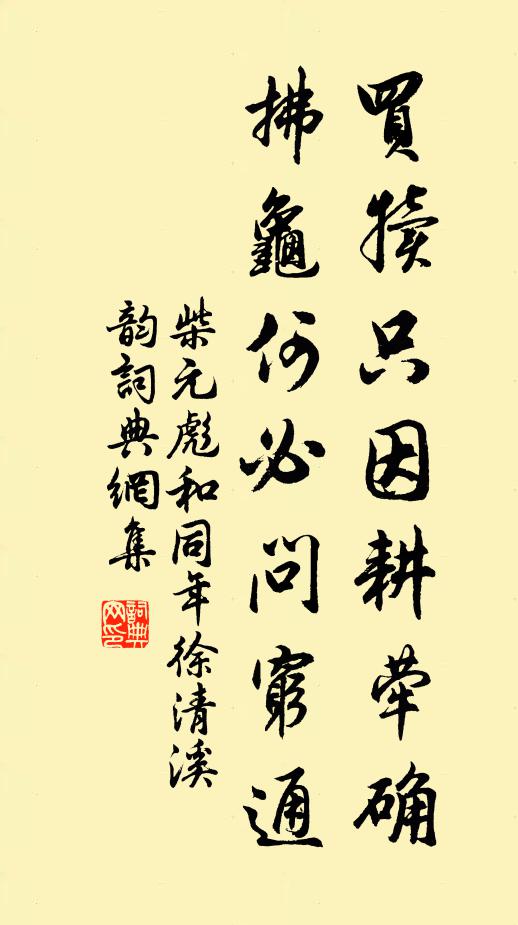 買犢只因耕荦确
拂龜何必問窮通
柴元彪和同年徐清溪
韵詞典網集
詞典
网印